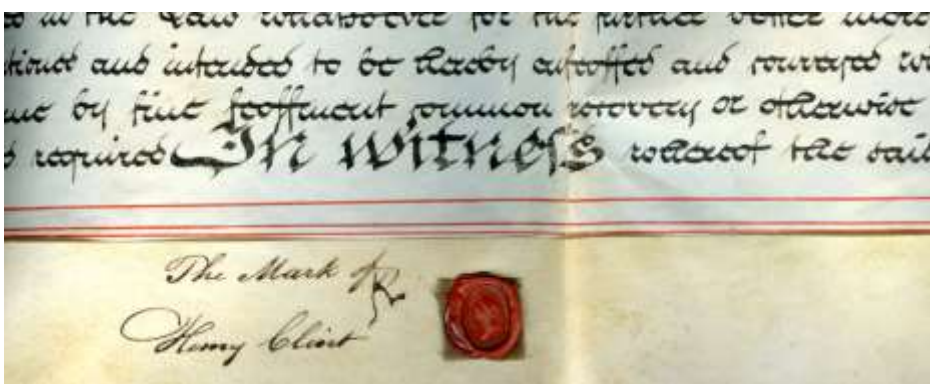 in the Law whatsoever for the further better more
tioned and intended to be thereby enfeoffed and conveyed
by fine feoffment common recovery or otherwise
required In witness whereof the said
The Mark of
Henry Clint